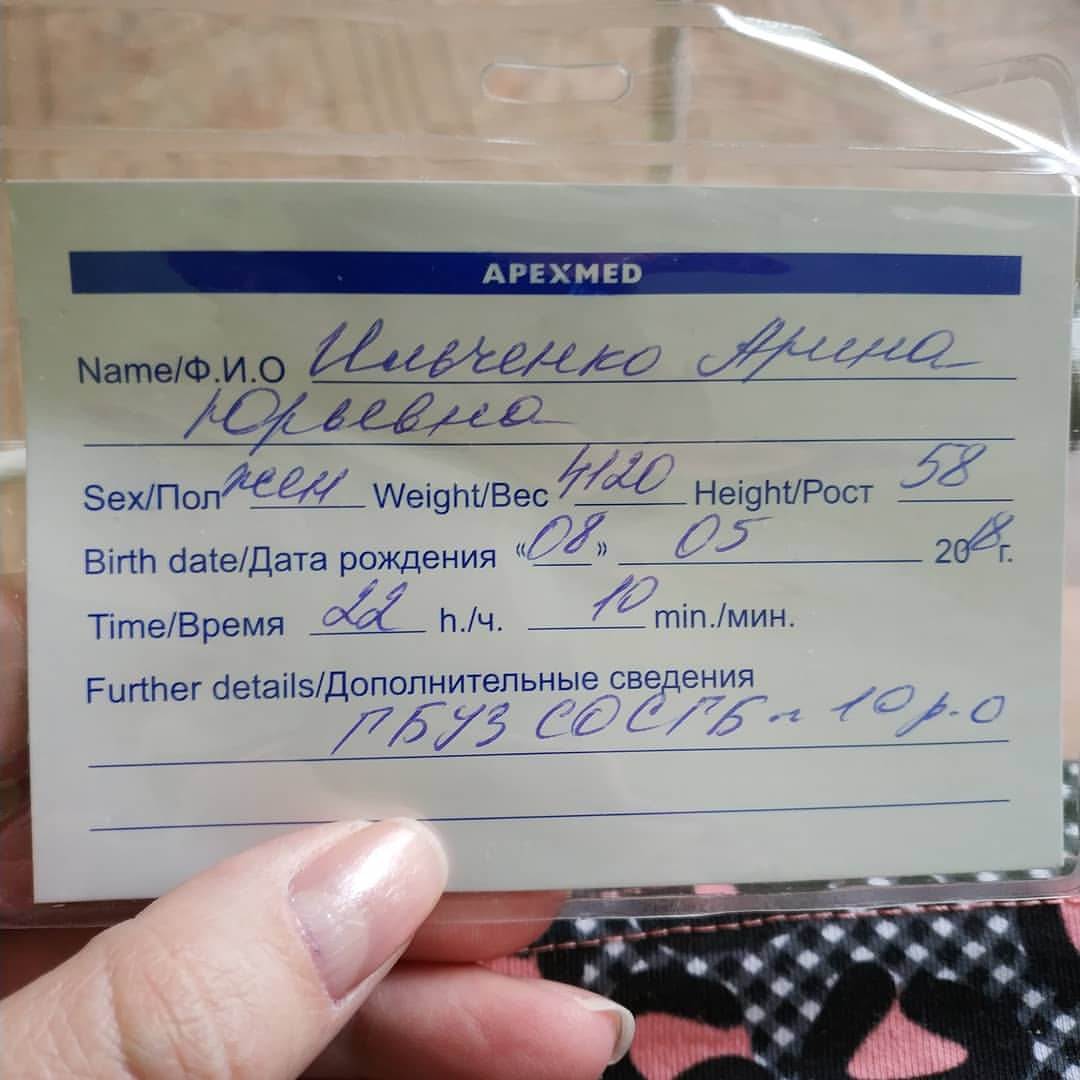 APEXMED
Name/Ф.И.О Ильченко Арина
Юрьевна
Sex/Пол жен Weight/Вес 4120 Height/Рост 58
Birth date/Дата рождения «08» 05 2018г.
Time/Время 22 h./ч. 10 min./мин.
Further details/Дополнительные сведения
ГБУЗ СОСГБ 10 р.о